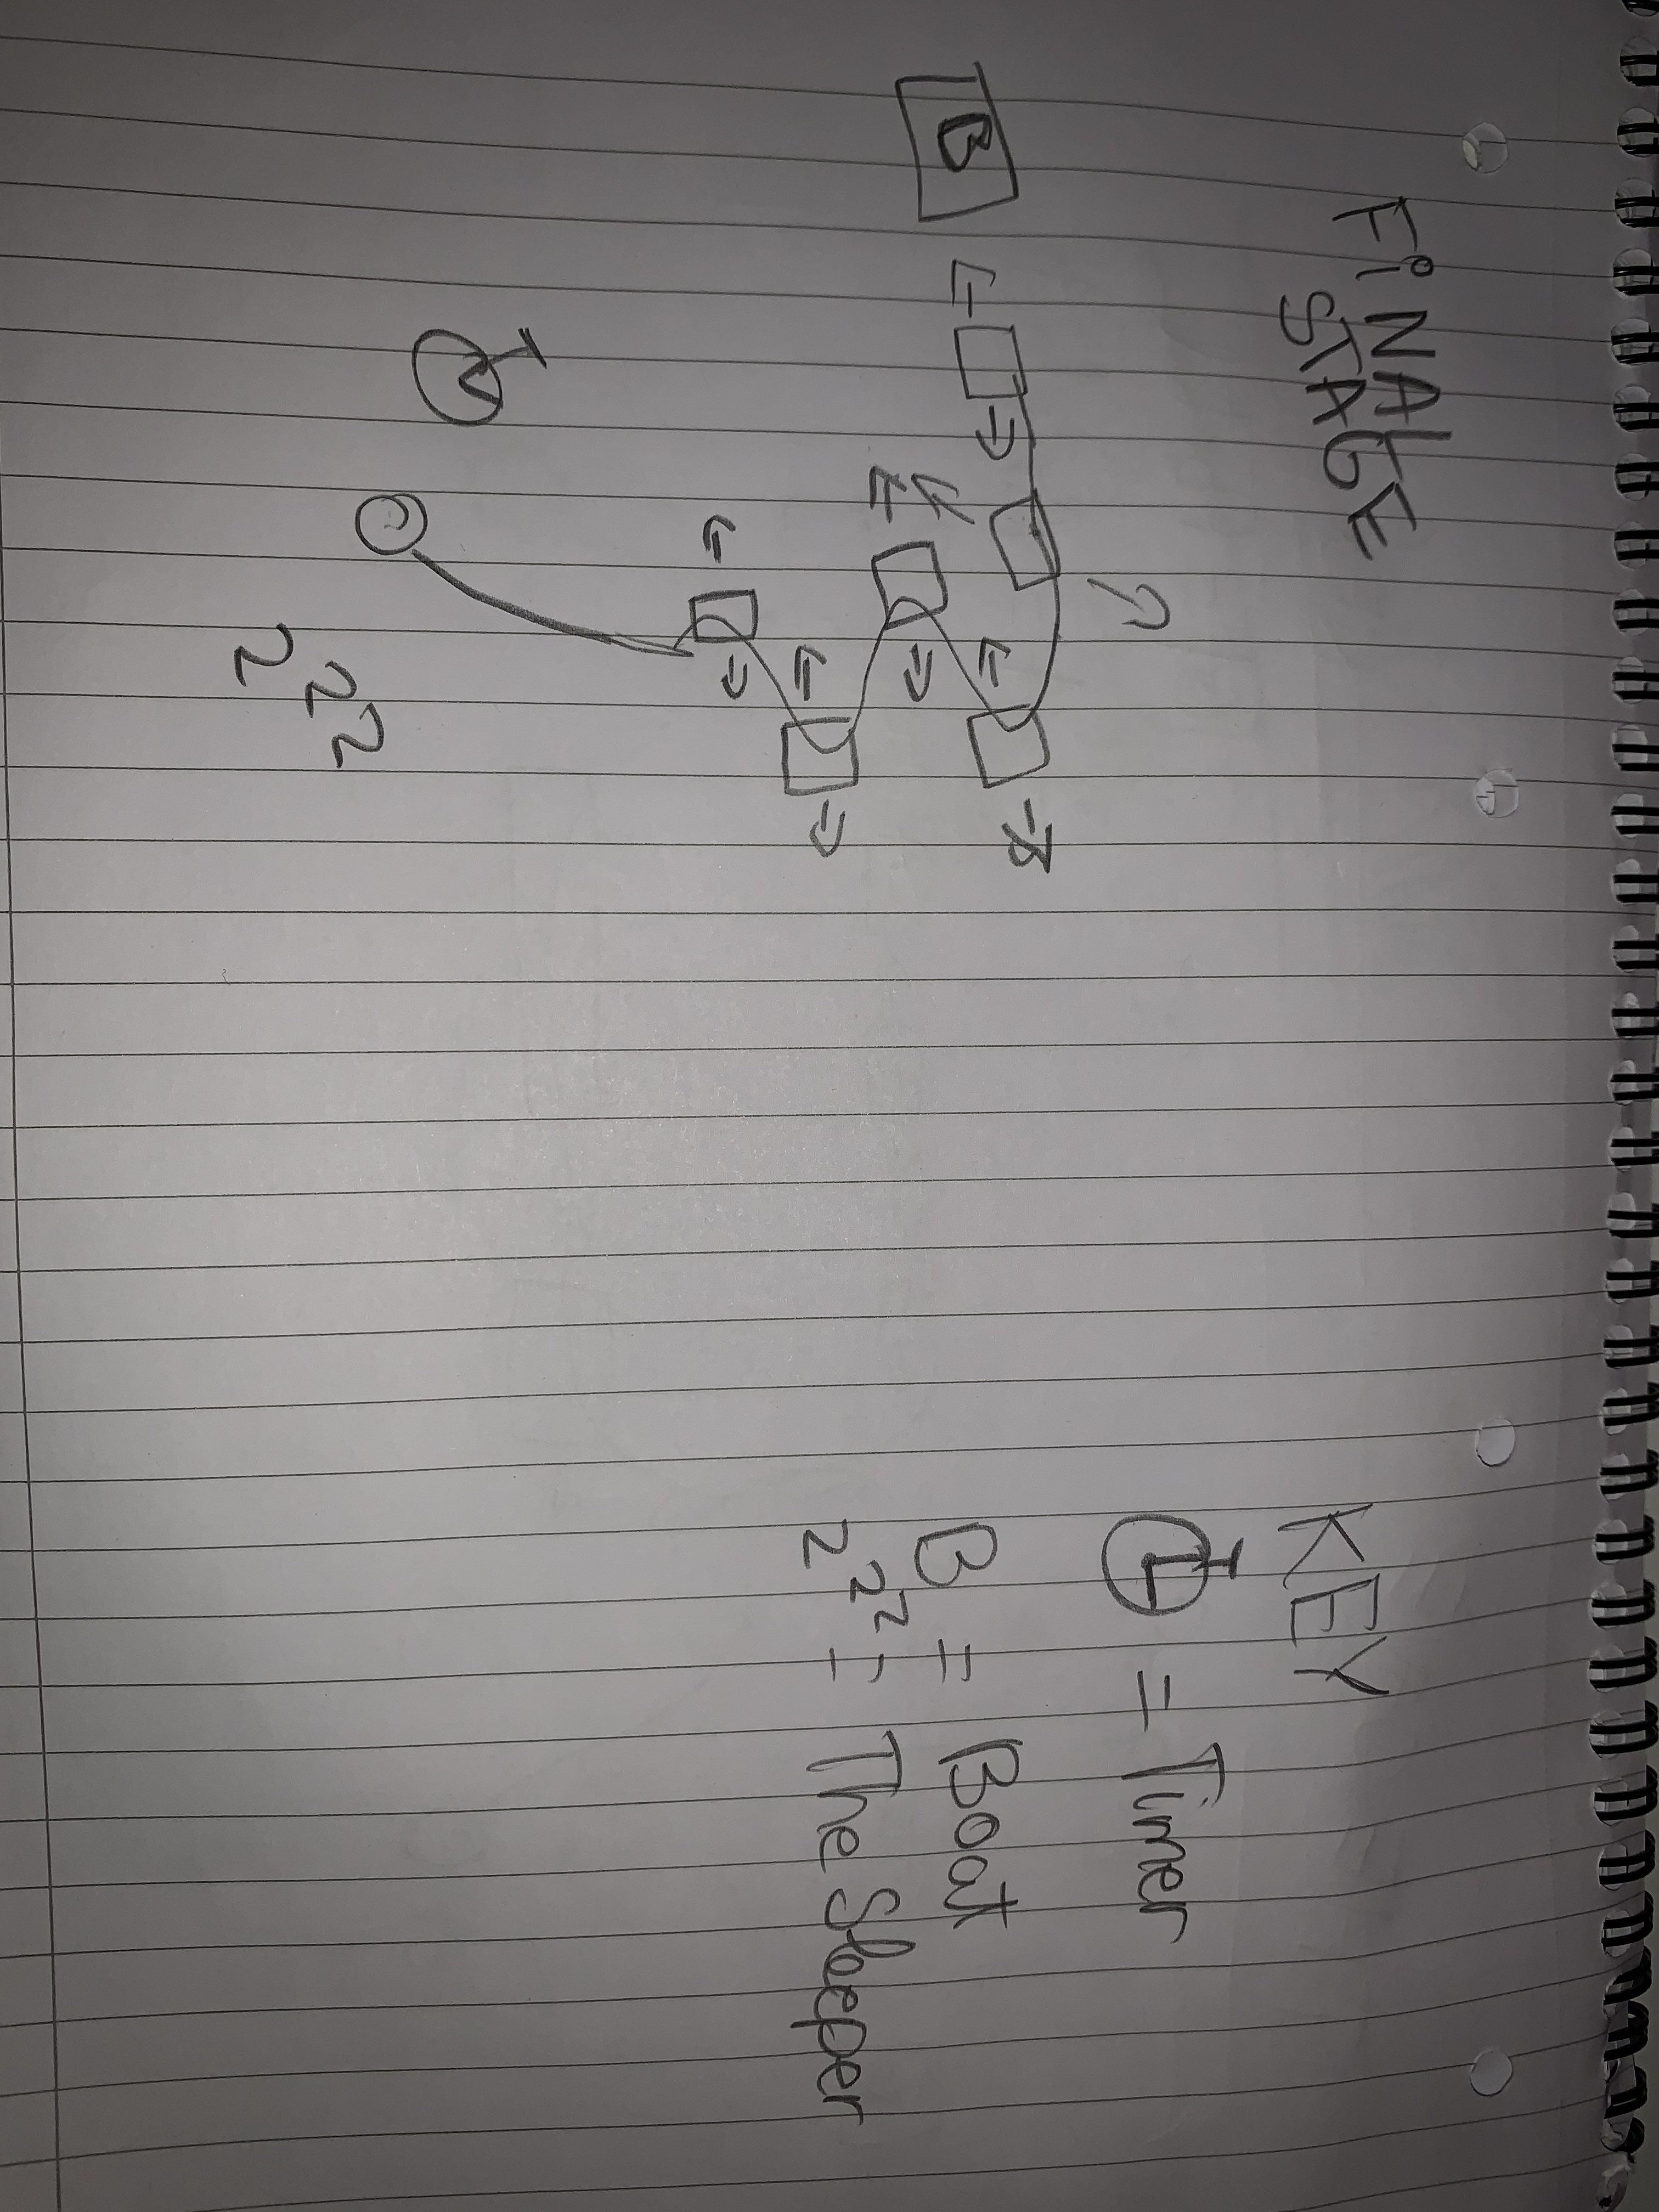 FiNAL
STAGE
B
2
2
2
KEY
= Timer
B = Boat
2 2 2 = The Sleeper